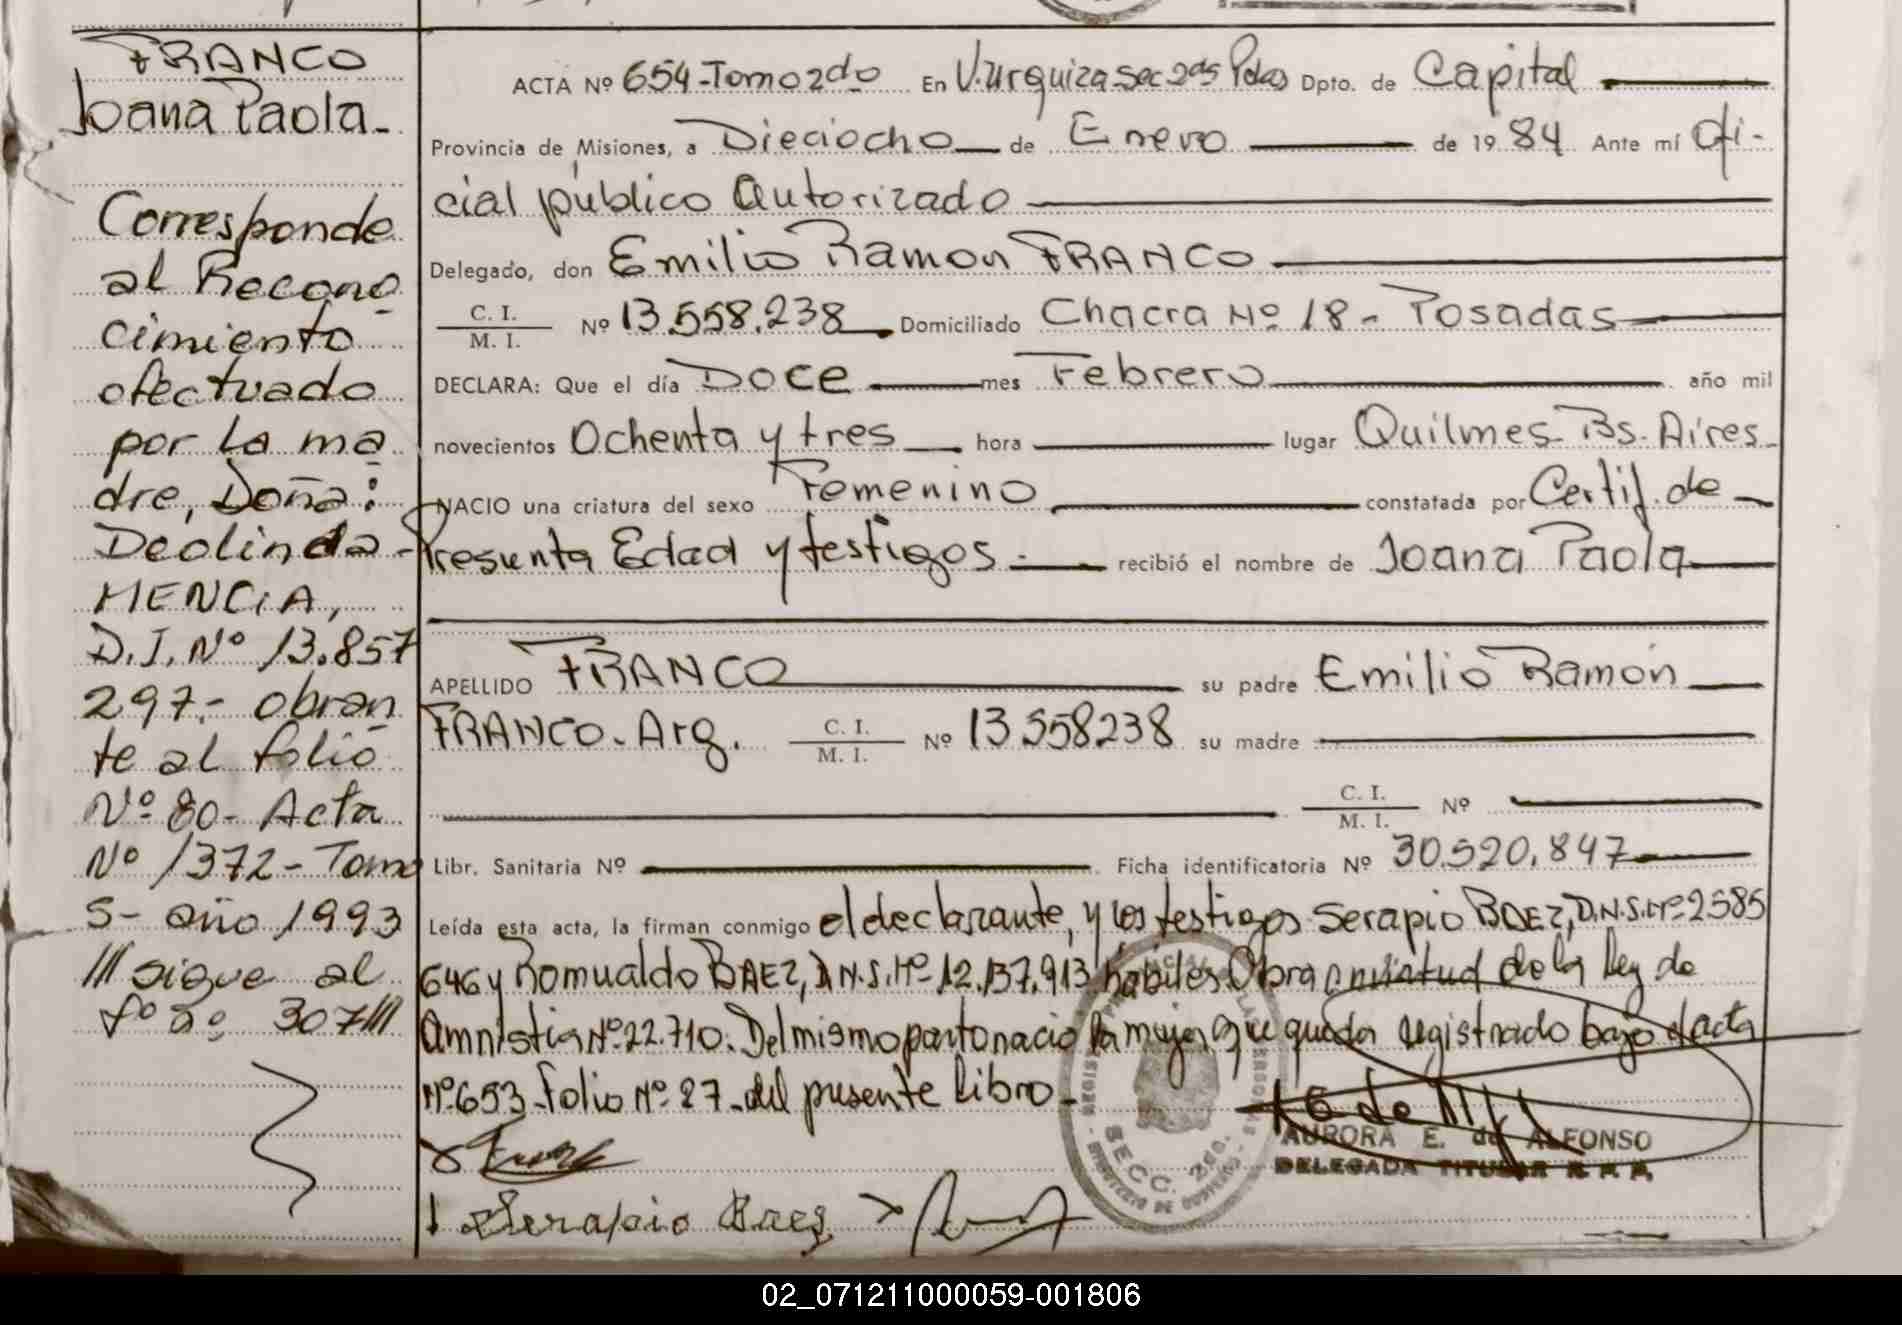 FRANCO
Joana Paola-
Corresponde
al Recono
cimiento
efectuado
por la ma
dre, Doña:
Deolinda-
MENCIA,
D.I. Nº 13.857
297.- obran
te al folio
Nº 80- Acta
Nº 1372- Tomo
5- año 1993
///sigue al
fº nº 307///
ACTA Nº 654-Tomo 2do En V. Urquiza Sec 2da Pdas Dpto. de Capital
Provincia de Misiones, a Dieciocho de Enero de 1984 Ante mí Ofi-
cial público Autorizado
Delegado, don Emilio Ramon FRANCO
C. I.
M. I.
Nº 13.558.238 Domiciliado Chacra Nº 18 - Posadas
DECLARA: Que el día Doce mes Febrero año mil
novecientos Ochenta y tres hora lugar Quilmes Bs. Aires
NACIO una criatura del sexo Femenino constatada por Certif. de
Presunta Edad y testigos.- recibió el nombre de Joana Paola
APELLIDO FRANCO su padre Emilio Ramón
FRANCO. Arg. C. I.
M. I.
Nº 13558238 su madre
C. I.
M. I.
Nº
Libr. Sanitaria Nº Ficha identificatoria Nº 30.520.847
Leída esta acta, la firman conmigo el declarante, y los testigos Serapio BAEZ, D.N.I. Nº 2585
646 y Romualdo BAEZ, D.N.I. Nº 12.137.913 hábiles Obra en virtud de la Ley de
Amnistia Nº 22.710. Del mismo parto nacio la mujer que queda registrado bajo Acta
Nº 653 - Folio Nº 27 - del presente Libro -
Serapio Baez
SECC. 2da.
AURORA E. de ALFONSO
DELEGADA TITULAR R. P. P.
02_071211000059-001806